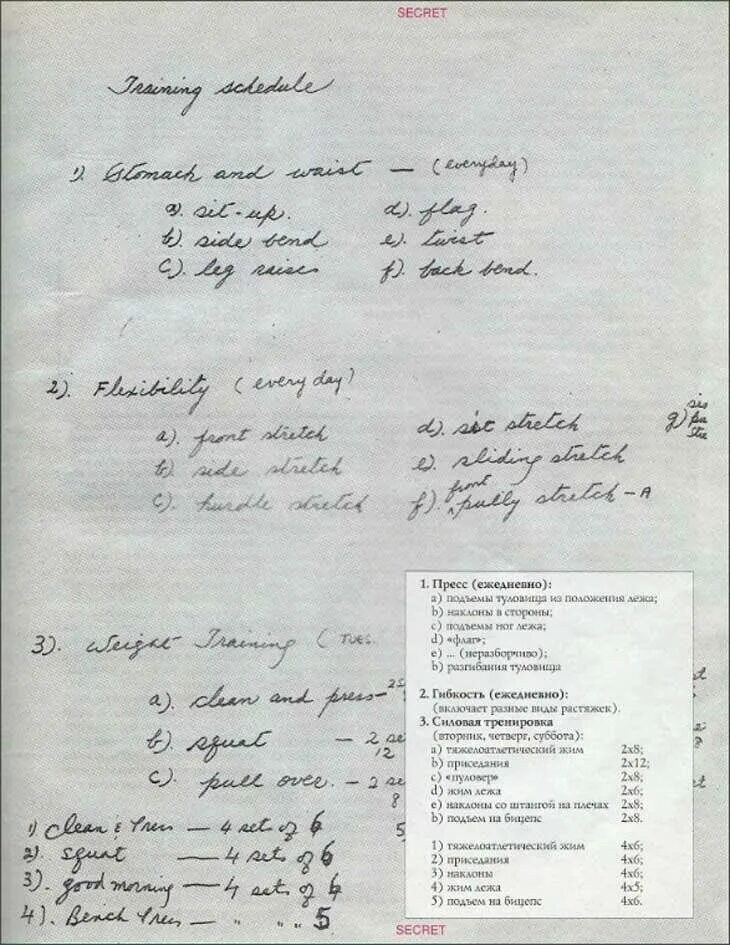 SECRET
Training schedule
1). Stomach and waist — (everyday)
a). sit-up.
b). side bend
c). leg raises
d). flag.
e). twist
f). back bend.
2). Flexibility (everyday)
a). front stretch
b). side stretch
c). hurdle stretch
d). sit stretch
e). sliding stretch
f). front pully stretch - A
g)
3). Weight Training (TUES.
a). clean and press -
b). squat — 2 se
12
c). pull over. — 2 se
8
1) Clean & Press — 4 sets of 6
2). squat — 4 sets of 6
3). good morning — 4 sets of 6
4). Bench Press — " " " 5
5)
1. Пресс (ежедневно):
a) подъемы туловища из положения лежа;
b) наклоны в стороны;
c) подъемы ног лежа;
d) «флаг»;
e) ... (неразборчиво);
b) разгибания туловища
2. Гибкость (ежедневно):
(включает разные виды растяжек).
3. Силовая тренировка
(вторник, четверг, суббота):
a) тяжелоатлетический жим 2x8;
b) приседания 2x12;
c) «пуловер» 2x8;
d) жим лежа 2x6;
e) наклоны со штангой на плечах 2x8;
b) подъем на бицепс 2x8.
1) тяжелоатлетический жим 4x6;
2) приседания 4x6;
3) наклоны 4x6;
4) жим лежа 4x5;
5) подъем на бицепс 4x6.
SECRET